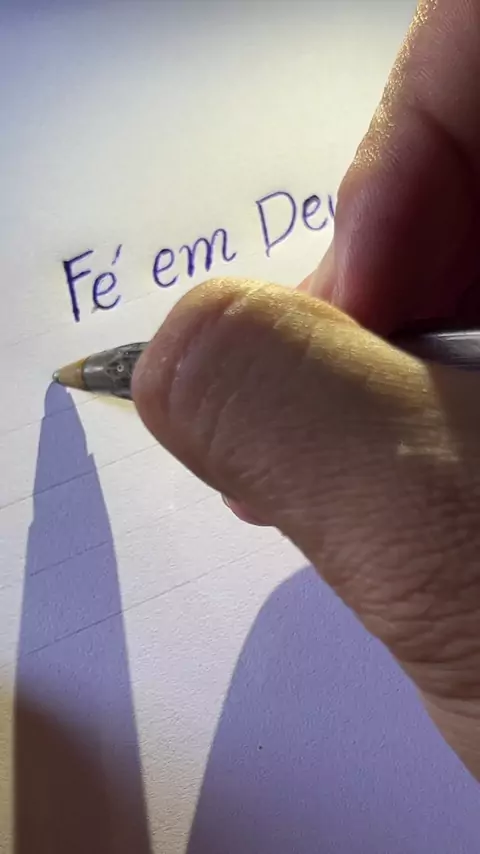 Fé em Deu